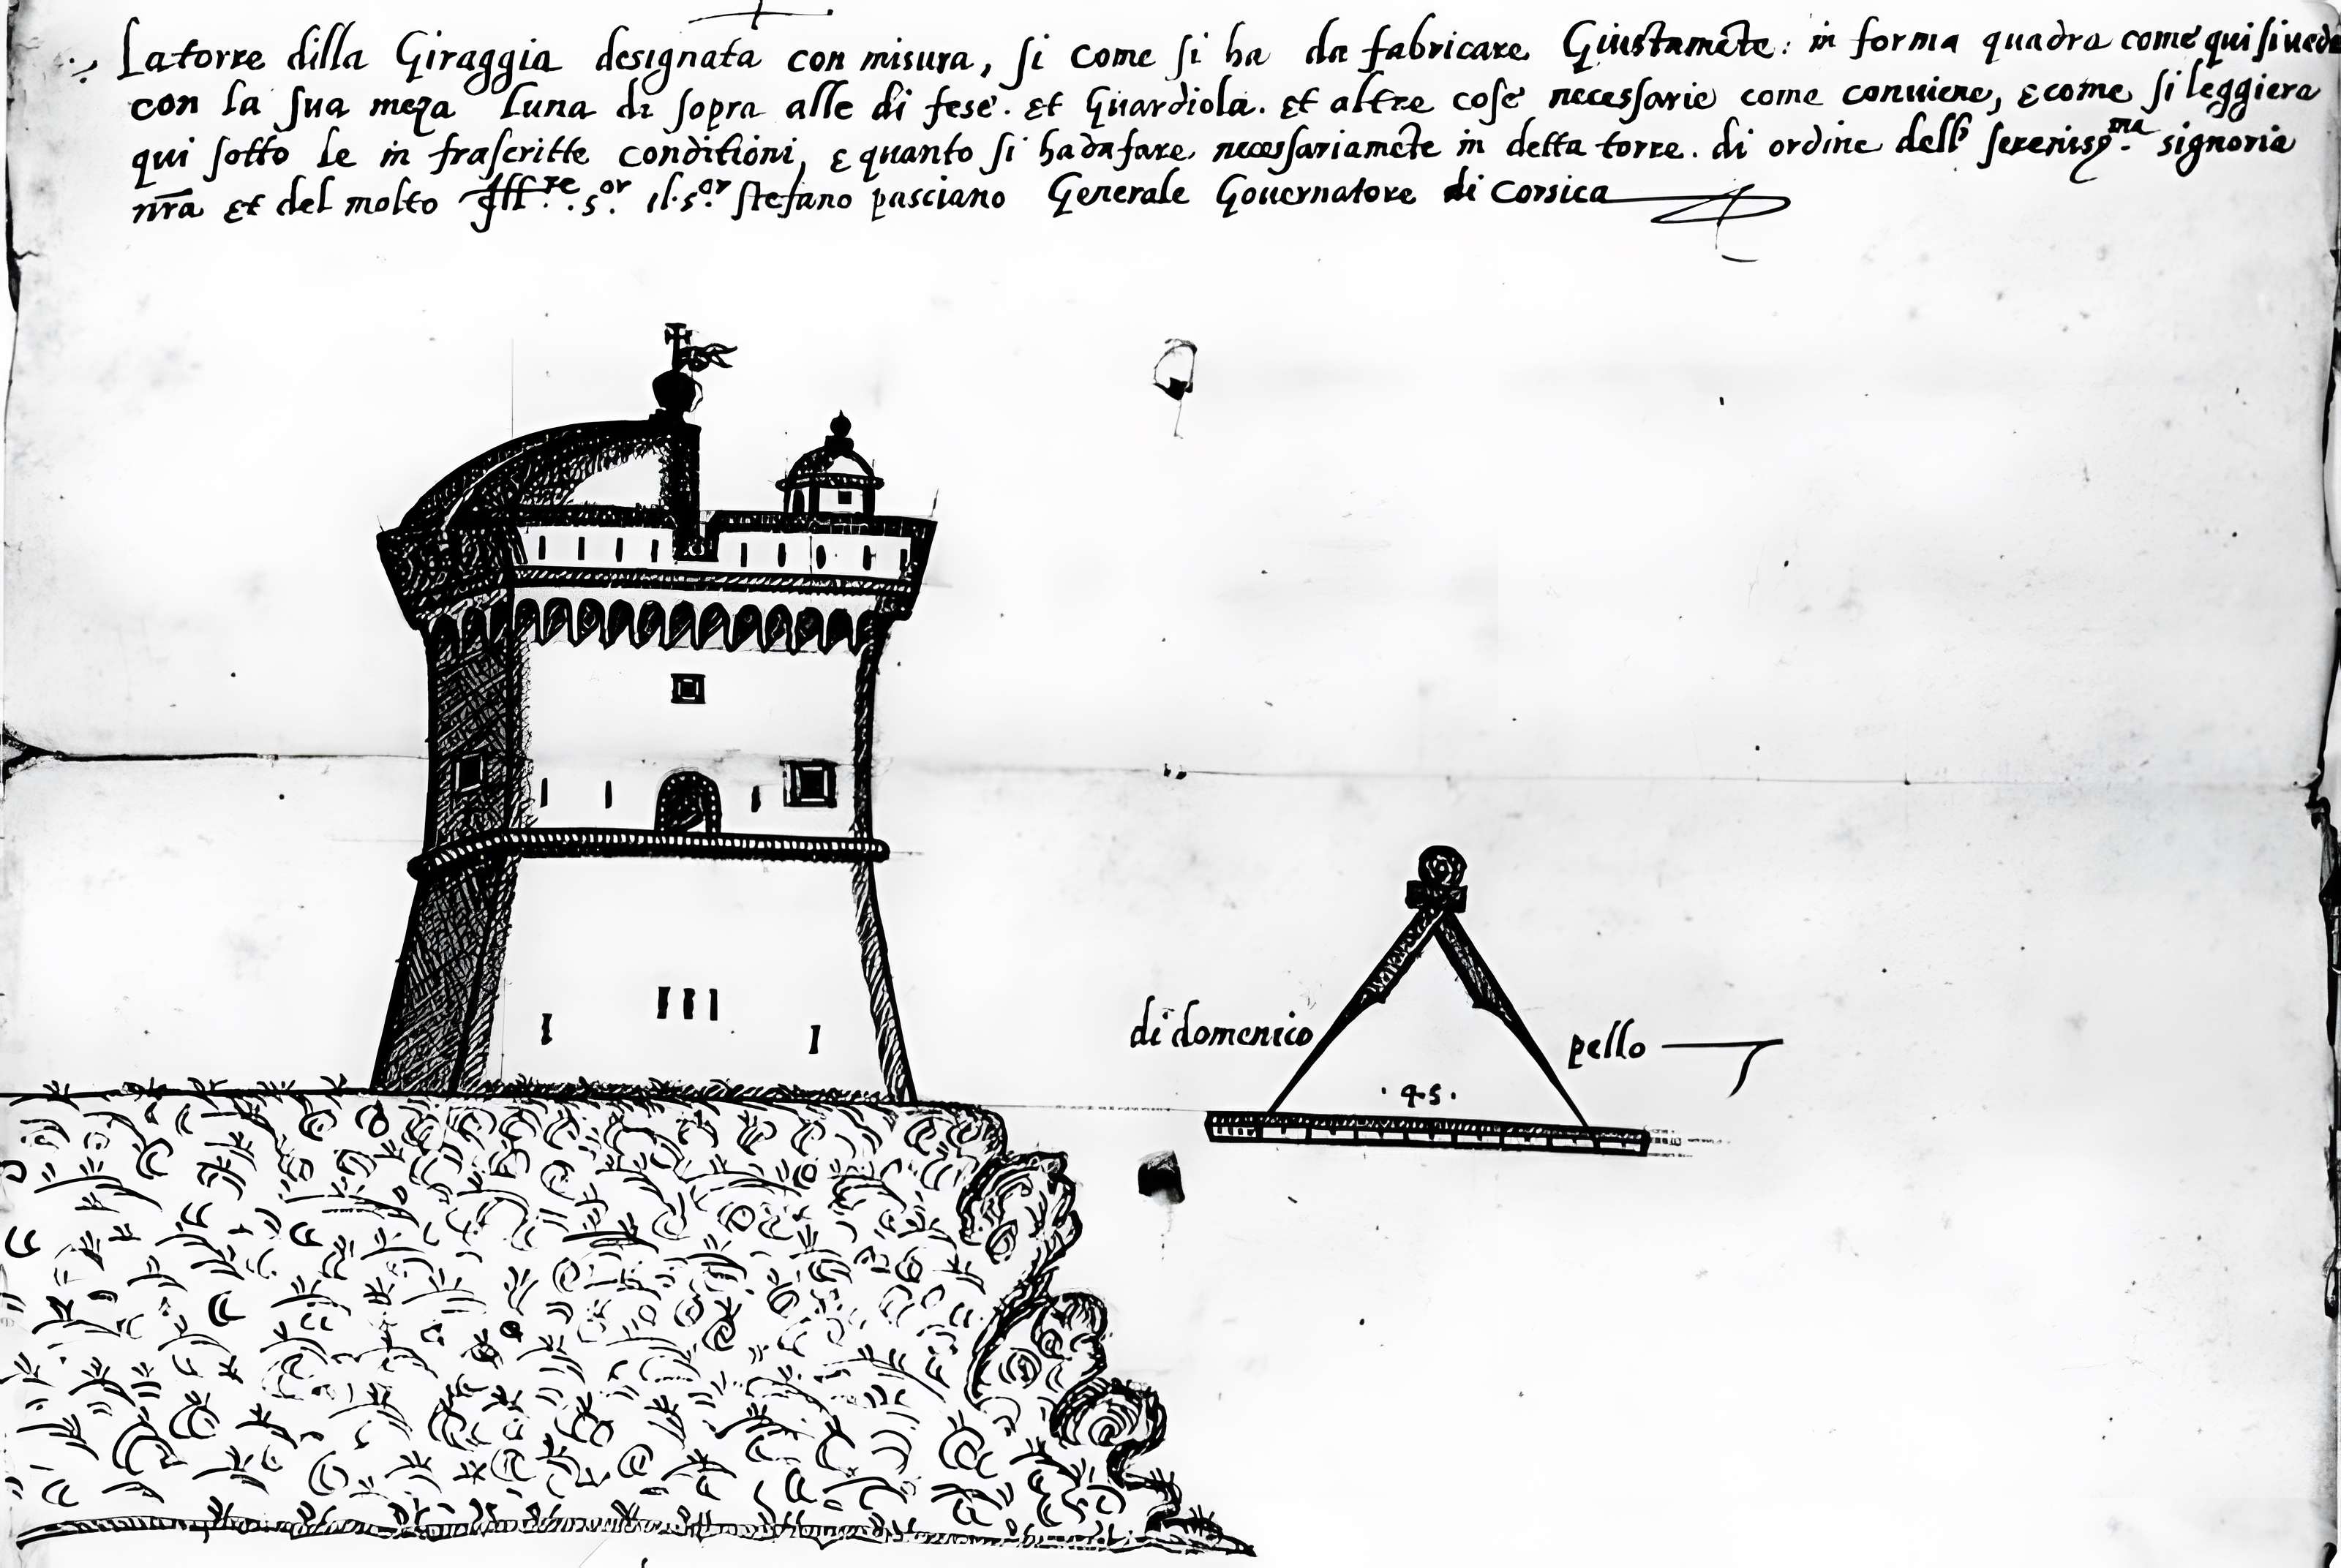 La torre dilla Giraggia designata con misura, si come si ha da fabricare Giustamēte: in forma quadra come qui si vede
con la sua meza Luna di sopra alle di fese. et Guardiola. et altre cose necessarie come conviene, e come si leggiera
qui sotto le in frascritte conditioni, e quanto si ha da fare necessariamēte in detta torre. di ordine della sereniss.ma signoria
nr̄a et del molto Ill.re s.or il s.or stefano pasciano Generale Governatore di Corsica
di domenico pello
.45.